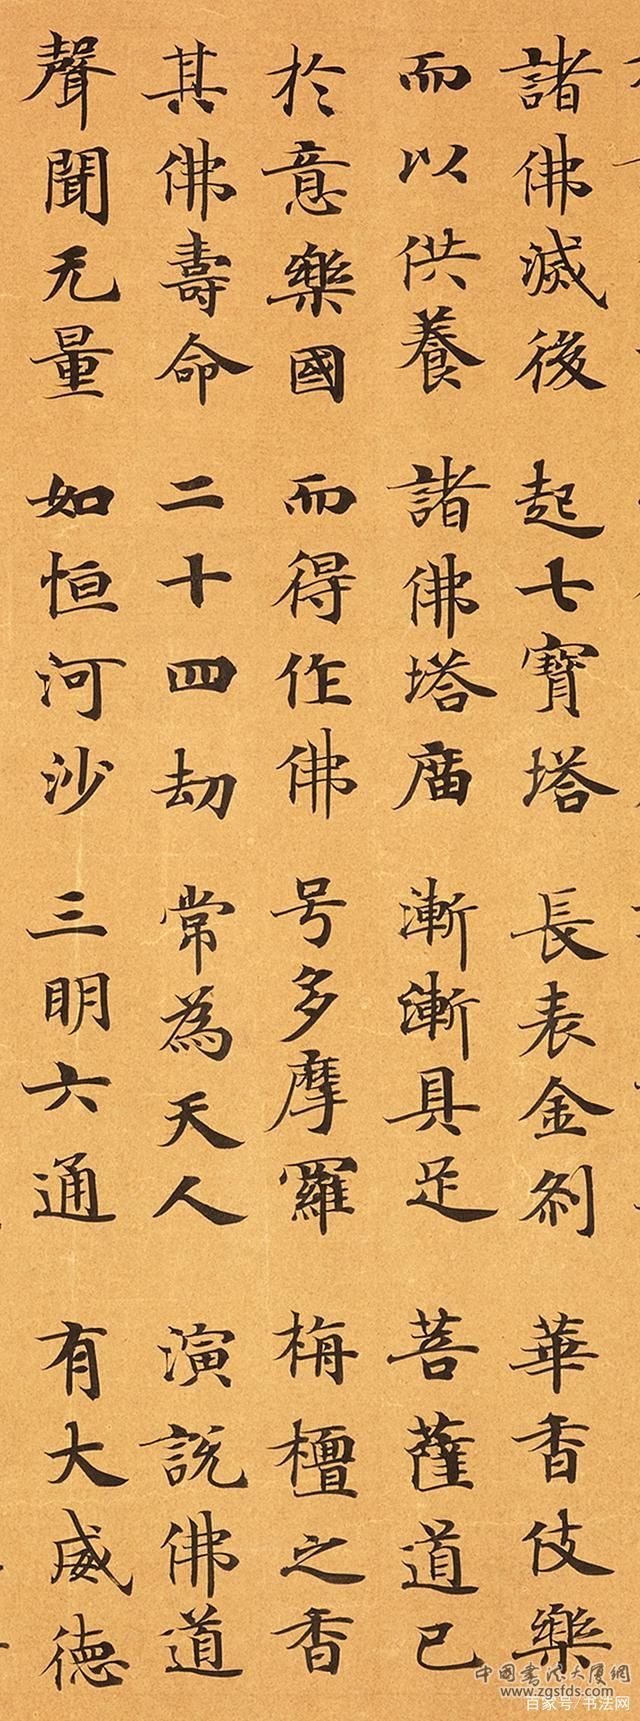 諸佛滅後 起七寶塔 長表金刹 華香伎樂
而以供養 諸佛塔庿 漸漸具足 菩薩道已
於意樂國 而得作佛 号多摩羅 栴檀之香
其佛壽命 二十四劫 常為天人 演說佛道
聲聞无量 如恒河沙 三明六通 有大威徳
中國書法大廈網
www.zgsfds.com
百家号/书法网